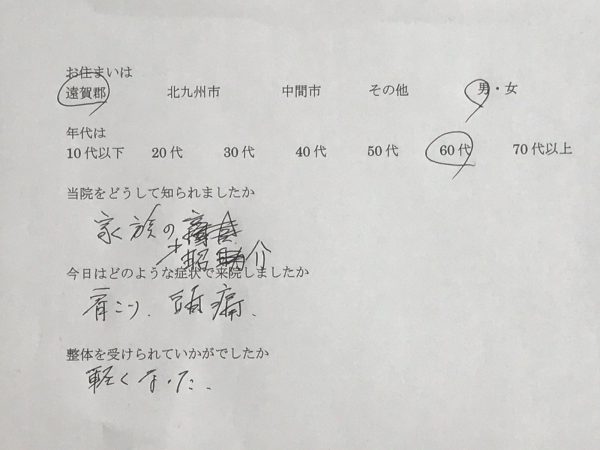 お住まいは
遠賀郡 北九州市 中間市 その他 男・女
年代は
10代以下 20代 30代 40代 50代 60代 70代以上
当院をどうして知られましたか
家族の
紹介
今日はどのような症状で来院しましたか
肩こり、頭痛、
整体を受けられていかがでしたか
軽くなった。